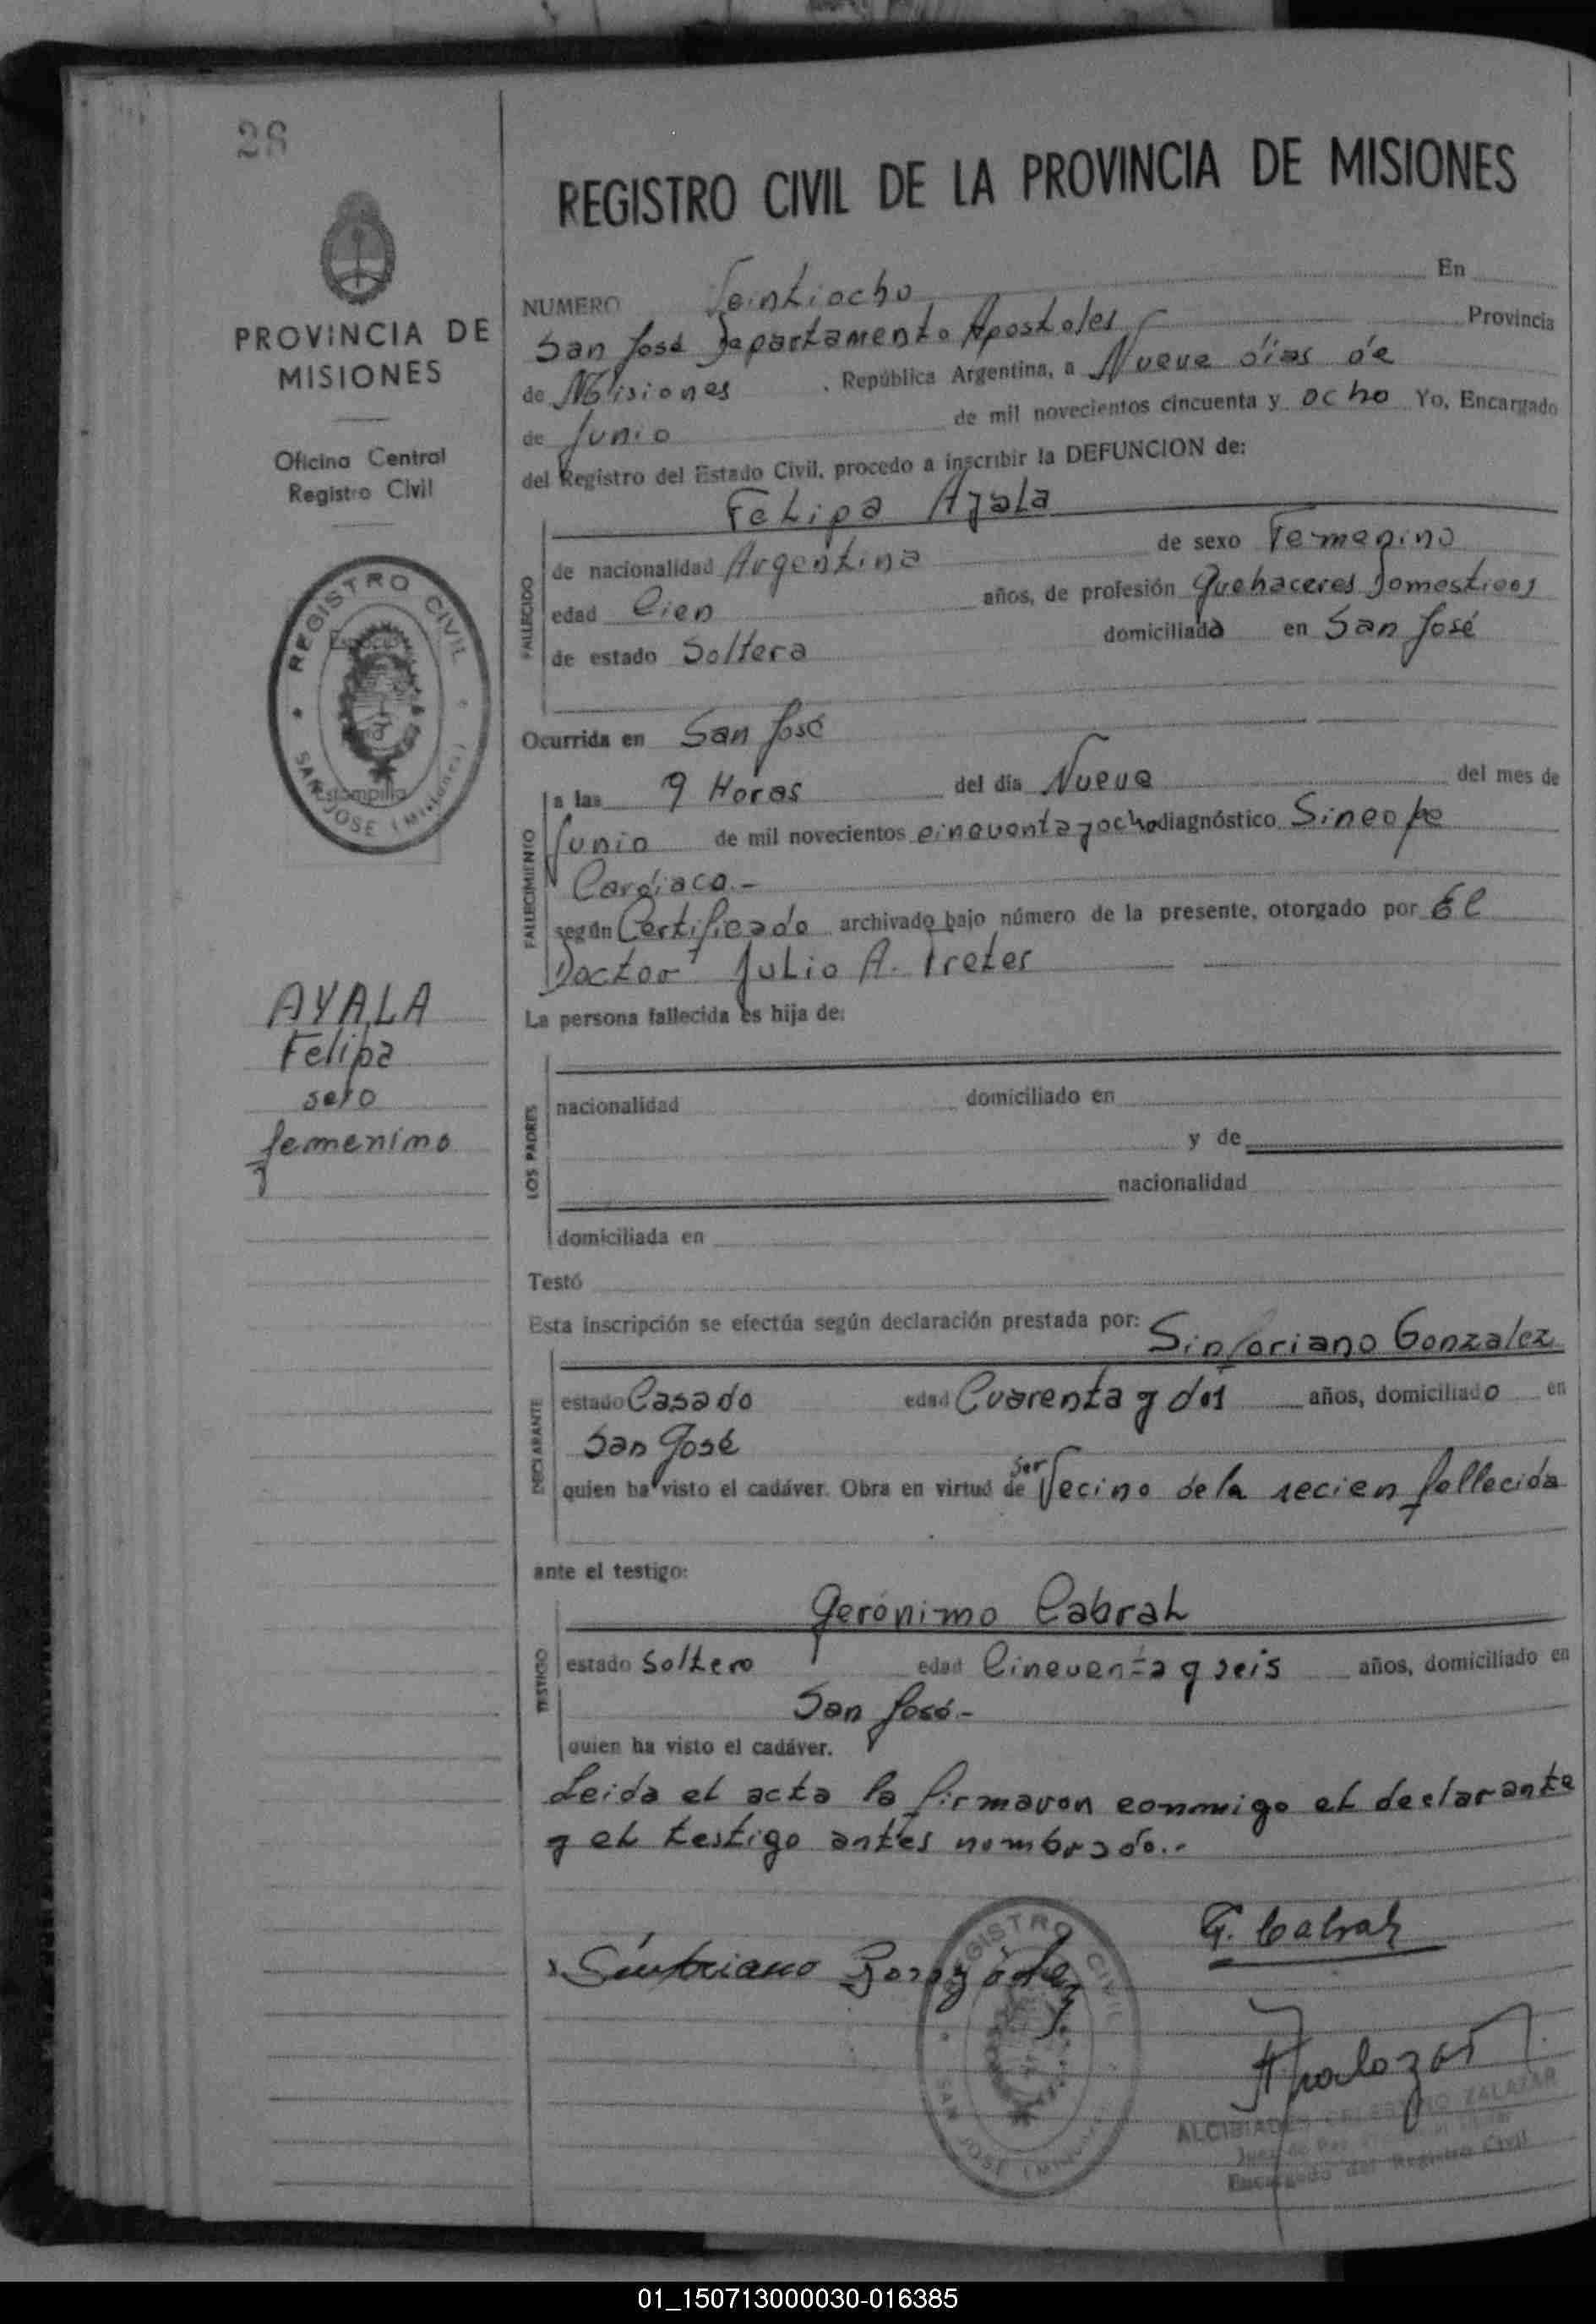 28
PROVINCIA DE
MISIONES
Oficina Central
Registro Civil
REGISTRO CIVIL
SAN JOSE (Misiones)
Estampilla
AYALA
Felipa
sexo
femenino
REGISTRO CIVIL DE LA PROVINCIA DE MISIONES
NUMERO Veintiocho En
San José Departamento Apostoles Provincia
de Misiones . República Argentina, a Nueve días de
de Junio de mil novecientos cincuenta y ocho Yo, Encargado
del Registro del Estado Civil, procedo a inscribir la DEFUNCION de:
Felipa Ayala
FALLECIDO
de nacionalidad Argentina de sexo Femenino
edad Cien años, de profesión Quehaceres Domesticos
de estado Soltera domiciliada en San José
Ocurrida en San José
FALLECIMIENTO
a las 9 Horas del día Nueve del mes de
Junio de mil novecientos cincuenta y ocho diagnóstico Sincope
Cardiaco.-
según Certificado archivado bajo número de la presente, otorgado por El
Doctor Julio A.
La persona fallecida es hija de:
LOS PADRES
nacionalidad domiciliado en
y de
nacionalidad
domiciliada en
Testó
Esta inscripción se efectúa según declaración prestada por:
Sinforiano Gonzalez
DECLARANTE
estado Casado edad Cuarenta y dos años, domiciliado en
San José
quien ha visto el cadáver. Obra en virtud de ser Vecino de la recien fallecida
ante el testigo:
Gerónimo Cabral
TESTIGO
estado Soltero edad Cincuenta y seis años, domiciliado en
San José.-
quien ha visto el cadáver.
Leida el acta la firmaron conmigo el declarante
y el testigo antes nombrado.-
G. Cabral
Sinforiano González
REGISTRO CIVIL
SAN JOSE (Misiones)
ALCIBIADES CELESTINO ZALAZAR
Encargado del Registro Civil
01_150713000030-016385